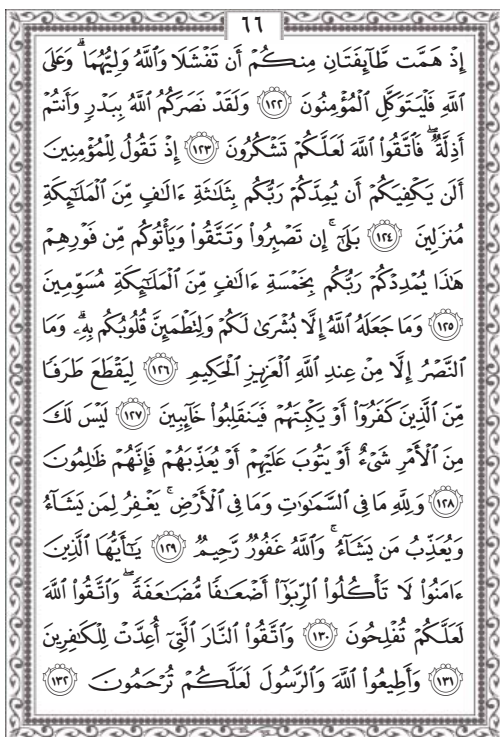 ٦٦
إِذْ هَمَّت طَّآئِفَتَانِ مِنكُمْ أَن تَفْشَلَا وَٱللَّهُ وَلِيُّهُمَا ۗ وَعَلَى
ٱللَّهِ فَلْيَتَوَكَّلِ ٱلْمُؤْمِنُونَ ١٢٢ وَلَقَدْ نَصَرَكُمُ ٱللَّهُ بِبَدْرٍ وَأَنتُمْ
أَذِلَّةٌ ۖ فَٱتَّقُوا۟ ٱللَّهَ لَعَلَّكُمْ تَشْكُرُونَ ١٢٣ إِذْ تَقُولُ لِلْمُؤْمِنِينَ
أَلَن يَكْفِيَكُمْ أَن يُمِدَّكُمْ رَبُّكُم بِثَلَـٰثَةِ ءَالَـٰفٍ مِّنَ ٱلْمَلَـٰٓئِكَةِ
مُنزَلِينَ ١٢٤ بَلَىٰٓ ۚ إِن تَصْبِرُوا۟ وَتَتَّقُوا۟ وَيَأْتُوكُم مِّن فَوْرِهِمْ
هَـٰذَا يُمْدِدْكُمْ رَبُّكُم بِخَمْسَةِ ءَالَـٰفٍ مِّنَ ٱلْمَلَـٰٓئِكَةِ مُسَوِّمِينَ
١٢٥ وَمَا جَعَلَهُ ٱللَّهُ إِلَّا بُشْرَىٰ لَكُمْ وَلِتَطْمَئِنَّ قُلُوبُكُم بِهِۦ ۗ وَمَا
ٱلنَّصْرُ إِلَّا مِنْ عِندِ ٱللَّهِ ٱلْعَزِيزِ ٱلْحَكِيمِ ١٢٦ لِيَقْطَعَ طَرَفًا
مِّنَ ٱلَّذِينَ كَفَرُوٓا۟ أَوْ يَكْبِتَهُمْ فَيَنقَلِبُوا۟ خَآئِبِينَ ١٢٧ لَيْسَ لَكَ
مِنَ ٱلْأَمْرِ شَىْءٌ أَوْ يَتُوبَ عَلَيْهِمْ أَوْ يُعَذِّبَهُمْ فَإِنَّهُمْ ظَـٰلِمُونَ
١٢٨ وَلِلَّهِ مَا فِى ٱلسَّمَـٰوَٰتِ وَمَا فِى ٱلْأَرْضِ ۚ يَغْفِرُ لِمَن يَشَآءُ
وَيُعَذِّبُ مَن يَشَآءُ ۚ وَٱللَّهُ غَفُورٌ رَّحِيمٌ ١٢٩ يَـٰٓأَيُّهَا ٱلَّذِينَ
ءَامَنُوا۟ لَا تَأْكُلُوا۟ ٱلرِّبَوٰٓا۟ أَضْعَـٰفًا مُّضَـٰعَفَةً ۖ وَٱتَّقُوا۟ ٱللَّهَ
لَعَلَّكُمْ تُفْلِحُونَ ١٣٠ وَٱتَّقُوا۟ ٱلنَّارَ ٱلَّتِىٓ أُعِدَّتْ لِلْكَـٰفِرِينَ
١٣١ وَأَطِيعُوا۟ ٱللَّهَ وَٱلرَّسُولَ لَعَلَّكُمْ تُرْحَمُونَ ١٣٢